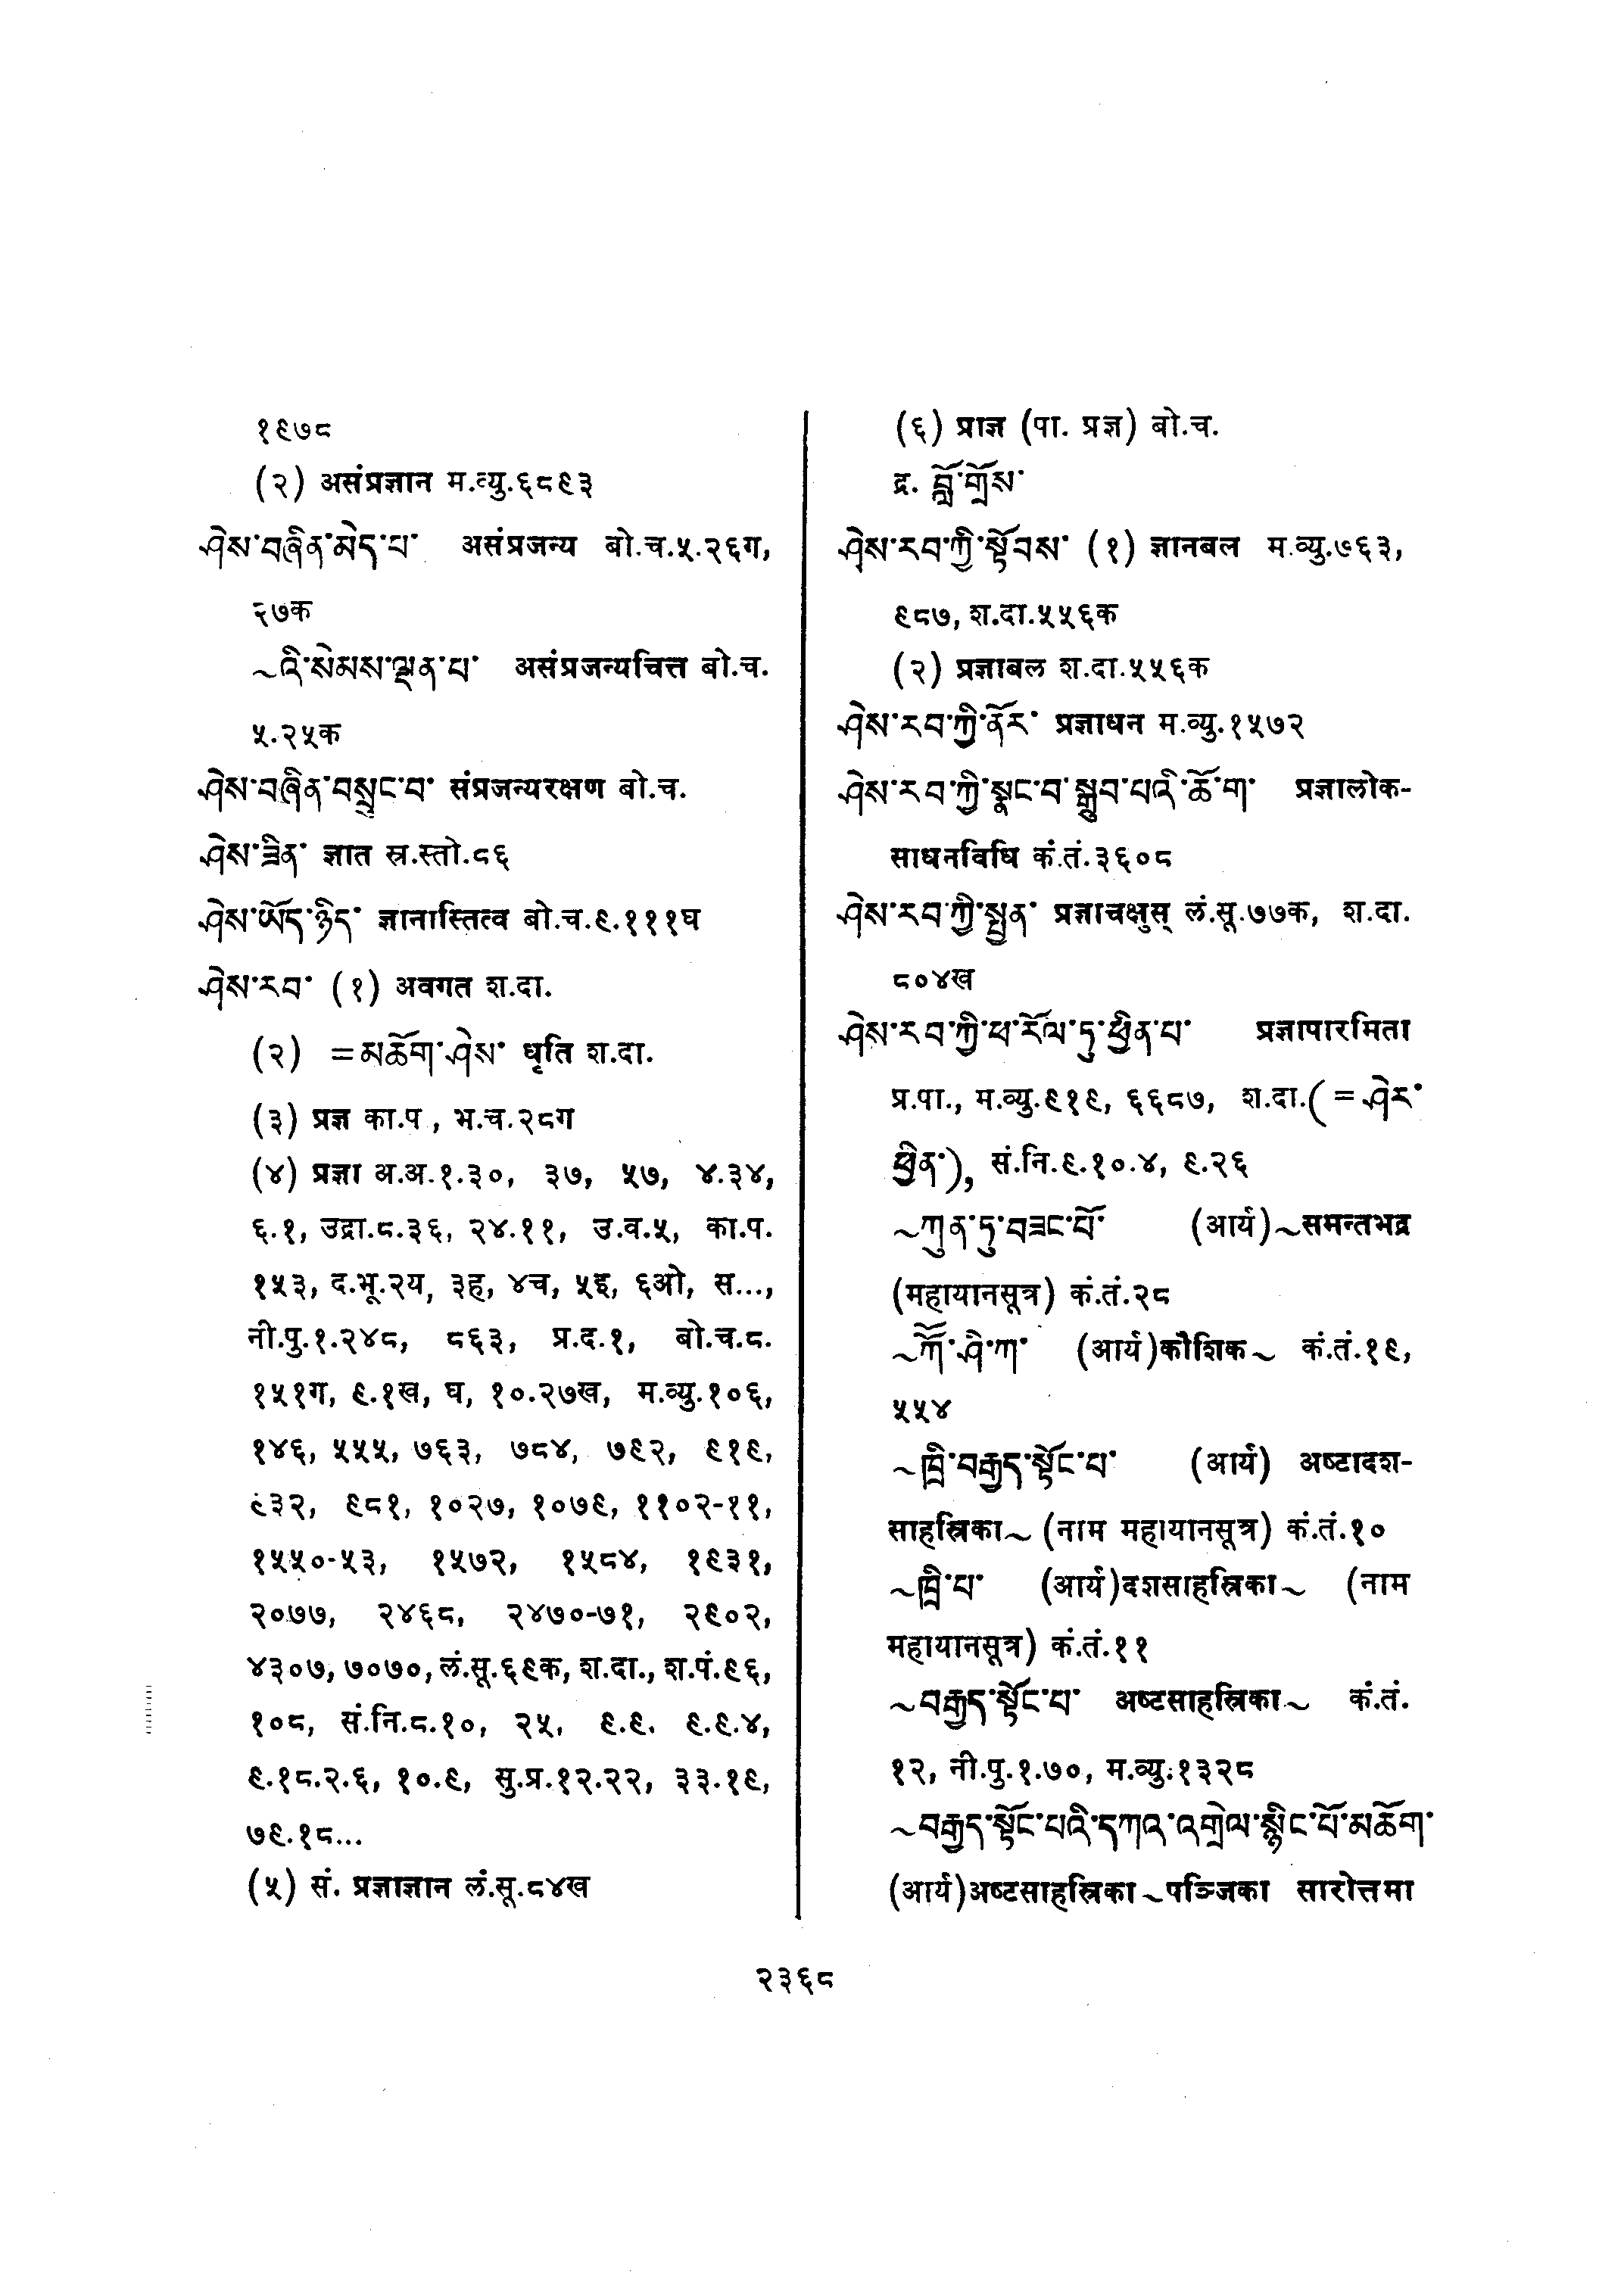 १९७८
(२) असंप्रज्ञान म.व्यु.६८९३
ཤེས་བཞིན་མེད་པ་ असंप्रजन्य बो.च.५.२६ग,
२७क
~འི་སེམས་ལྡན་པ་ असंप्रजन्यचित्त बो.च.
५.२५क
ཤེས་བཞིན་བསྲུང་བ་ संप्रजन्यरक्षण बो.च.
ཤེས་ཟིན་ ज्ञात स्र.स्तो.८६
ཤེས་ཡོད་ཉིད་ ज्ञानास्तित्व बो.च.९.१११घ
ཤེས་རབ་ (१) अवगत श.दा.
(२) =མཆོག་ཤེས་ धृति श.दा.
(३) प्रज्ञ का.प , भ.च.२८ग
(४) प्रज्ञा अ.अ.१.३०, ३७, ५७, ४.३४,
६.१, उद्रा.८.३६, २४.११, उ.व.५, का.प.
१५३, द.भू.२य, ३ह, ४च, ५इ, ६ओ, स...,
नी.पु.१.२४८, ८६३, प्र.द.१, बो.च.८.
१५१ग, ९.१ख, घ, १०.२७ख, म.व्यु.१०६,
१४६, ५५५, ७६३, ७८४, ७९२, ९१९,
९३२, ९८१, १०२७, १०७९, ११०२-११,
१५५०-५३, १५७२, १५८४, १९३१,
२०७७, २४६८, २४७०-७१, २९०२,
४३०७, ७०७०, लं.सू.६९क, श.दा., श.पं.९६,
१०८, सं.नि.८.१०, २५, ९.९. ९.९.४,
९.१८.२.६, १०.९, सु.प्र.१२.२२, ३३.१९,
७९.१८...
(५) सं. प्रज्ञाज्ञान लं.सू.८४ख
(६) प्राज्ञ (पा. प्रज्ञ) बो.च.
द्र. བློ་གྲོས་
ཤེས་རབ་ཀྱི་སྟོབས་ (१) ज्ञानबल म.व्यु.७६३,
९८७, श.दा.५५६क
(२) प्रज्ञाबल श.दा.५५६क
ཤེས་རབ་ཀྱི་ནོར་ प्रज्ञाधन म.व्यु.१५७२
ཤེས་རབ་ཀྱི་སྣང་བ་སྒྲུབ་པའི་ཆོ་ག་ प्रज्ञालोक-
साधनविधि कं.तं.३६०८
ཤེས་རབ་ཀྱི་སྤྱན་ प्रज्ञाचक्षुस् लं.सू.७७क, श.दा.
८०४ख
ཤེས་རབ་ཀྱི་ཕ་རོལ་ཏུ་ཕྱིན་པ་ प्रज्ञापारमिता
प्र.पा., म.व्यु.९१९, ६६८७, श.दा.( =ཤེར་
ཕྱིན་), सं.नि.९.१०.४, ९.२६
~ཀུན་ཏུ་བཟང་པོ་ (आर्य)~समन्तभद्र
(महायानसूत्र) कं.तं.२८
~ཀཽ་ཤི་ཀ་ (आर्य)कौशिक~ कं.तं.१९,
५५४
~ཁྲི་བརྒྱད་སྟོང་པ་ (आर्य) अष्टादश-
साहस्रिका~ (नाम महायानसूत्र) कं.तं.१०
~ཁྲི་པ་ (आर्य)दशसाहस्रिका~ (नाम
महायानसूत्र) कं.तं.११
~བརྒྱད་སྟོང་པ་ अष्टसाहस्रिका~ कं.तं.
१२, नी.पु.१.७०, म.व्यु.१३२८
~བརྒྱད་སྟོང་པའི་དཀའ་འགྲེལ་སྙིང་པོ་མཆོག་
(आर्य)अष्टसाहस्रिका~पञ्जिका सारोत्तमा
२३६८